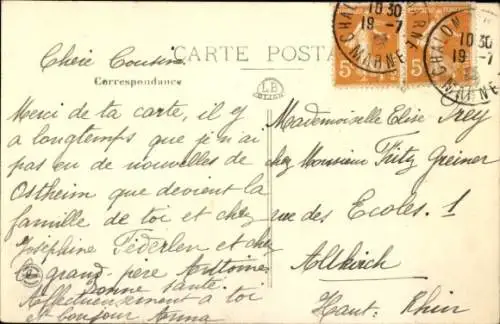 CARTE POSTA
Correspondance
Chère Cousine
Merci de ta carte, il y
a longtemps que je n'ai
pas eu de nouvelles de
Ostheim que devient la
famille de toi et chez
Joséphine Federlen et chez
le grand-père Antoine
bonne santé.
Affectueusement à toi
et bonjour Anna
LB
CHALON
MARNE
10 30
19 -7
5
CHALON
MARNE
10 30
19 -7
5
Mademoiselle Elise Frey
chez Monsieur Fritz Greiner
rue des Ecoles. 1
Altkirch
Haut. Rhin